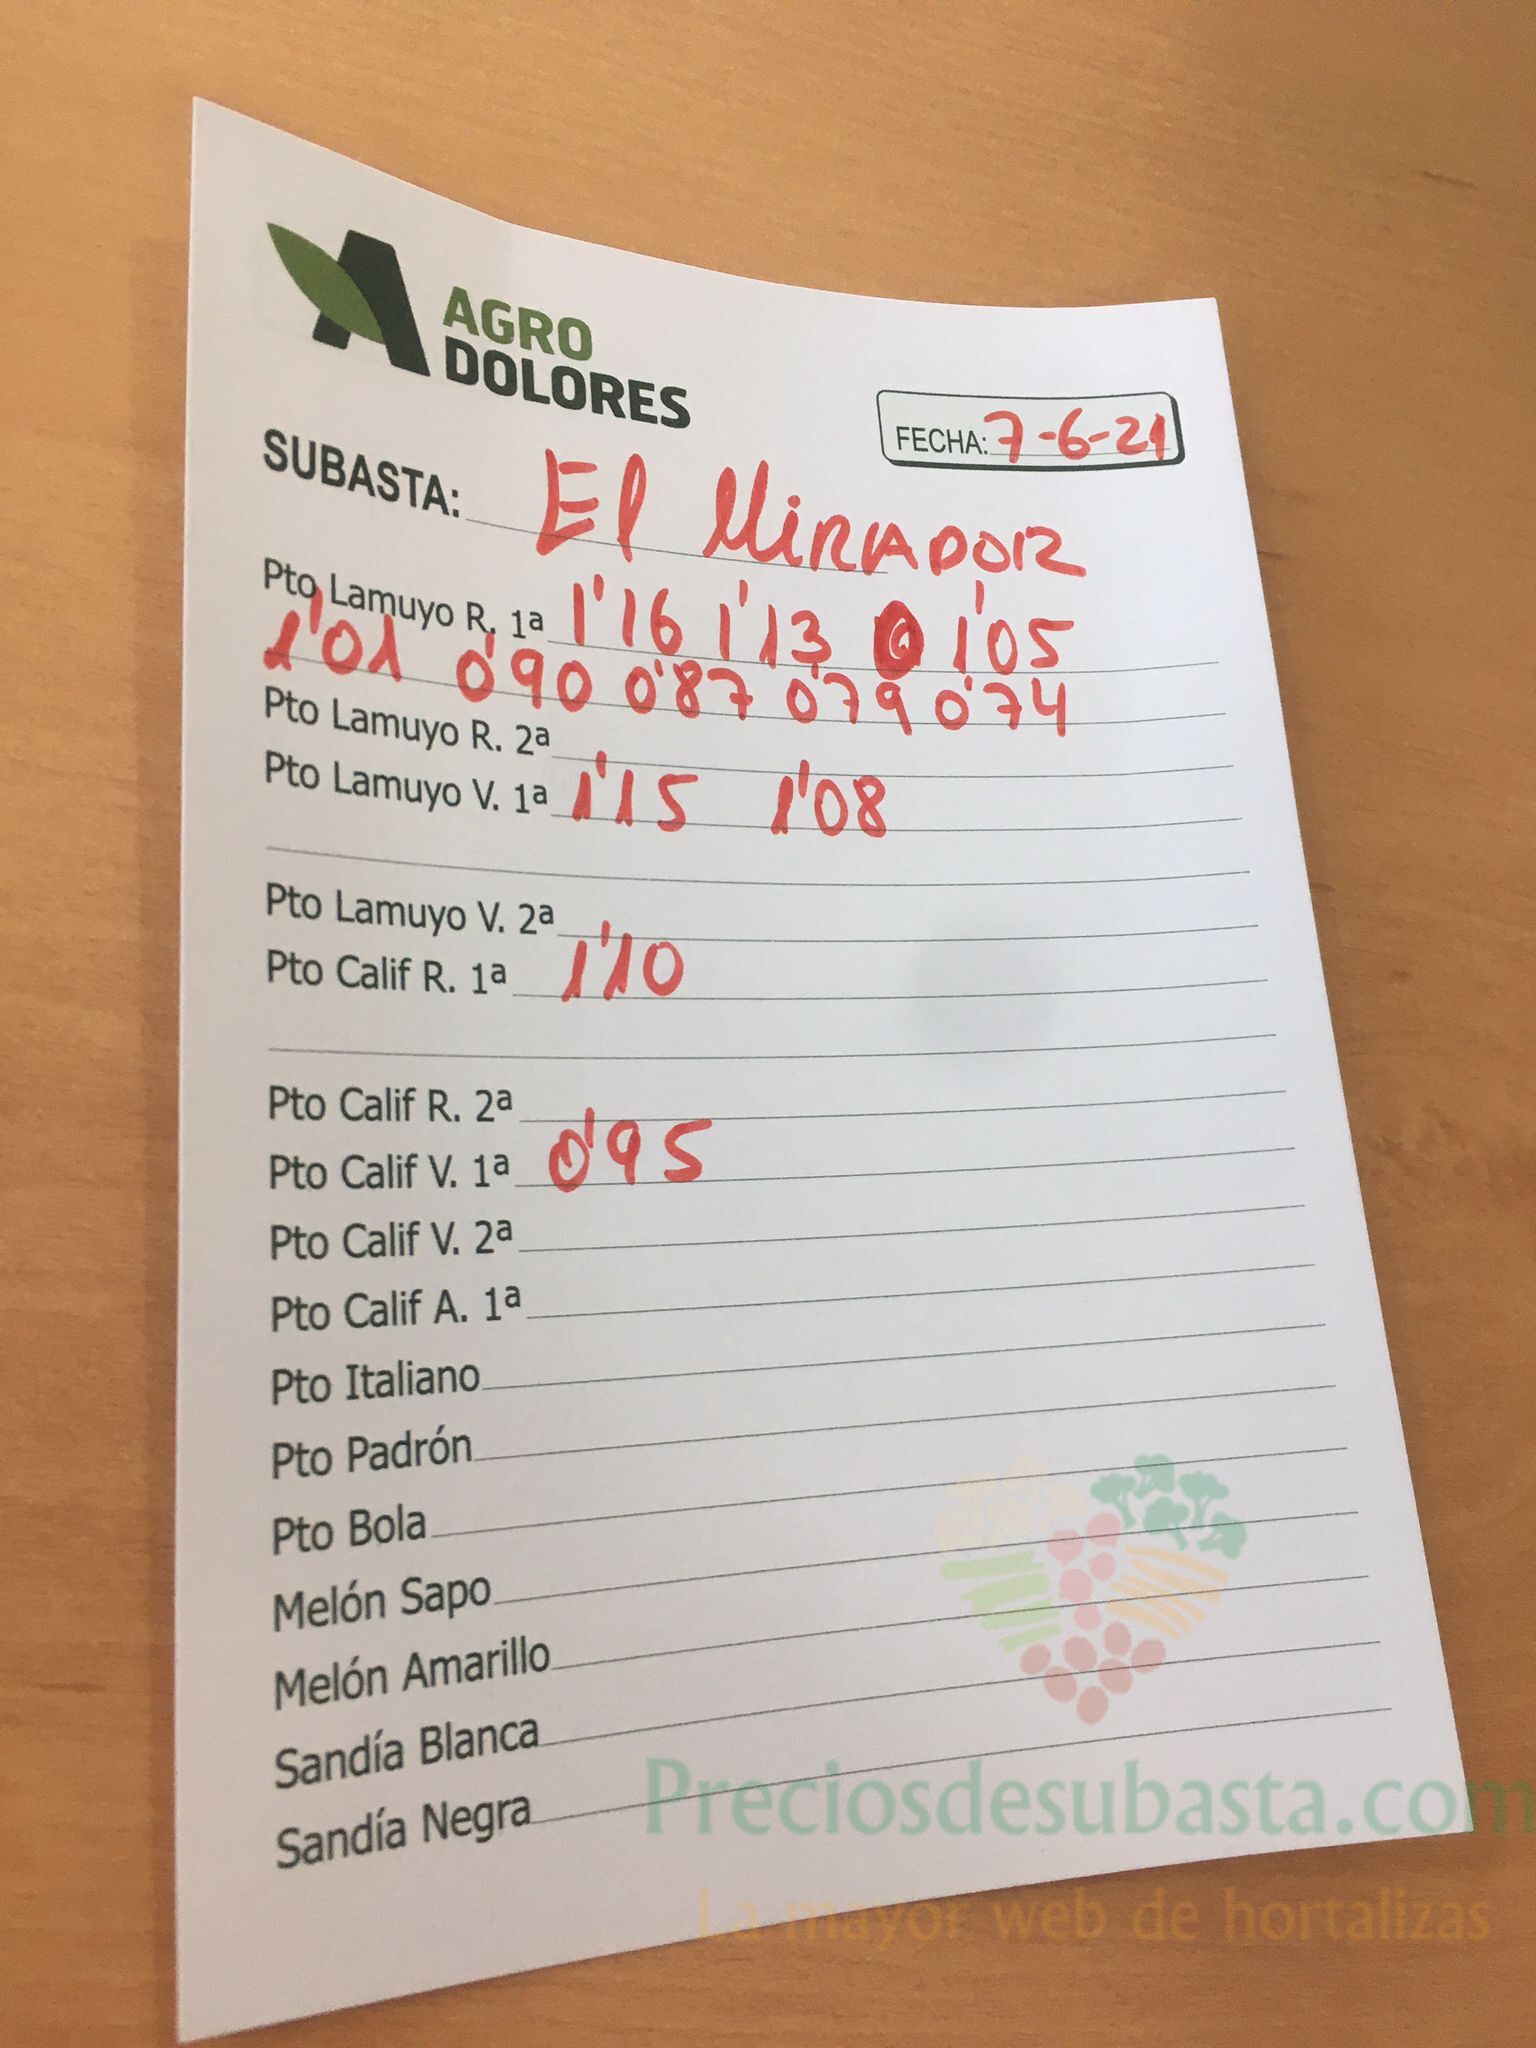 AGRO
DOLORES
FECHA: 7-6-21
SUBASTA: El MIRADOR
Pto Lamuyo R. 1ª 1'16 1'13 1'05
1'01 0'90 0'87 0'79 0'74
Pto Lamuyo R. 2ª
Pto Lamuyo V. 1ª 1'15 1'08
Pto Lamuyo V. 2ª
Pto Calif R. 1ª 1'10
Pto Calif R. 2ª
Pto Calif V. 1ª 0'95
Pto Calif V. 2ª
Pto Calif A. 1ª
Pto Italiano
Pto Padrón
Pto Bola
Melón Sapo
Melón Amarillo
Sandía Blanca
Sandía Negra
Preciosdesubasta.com
La mayor web de hortalizas